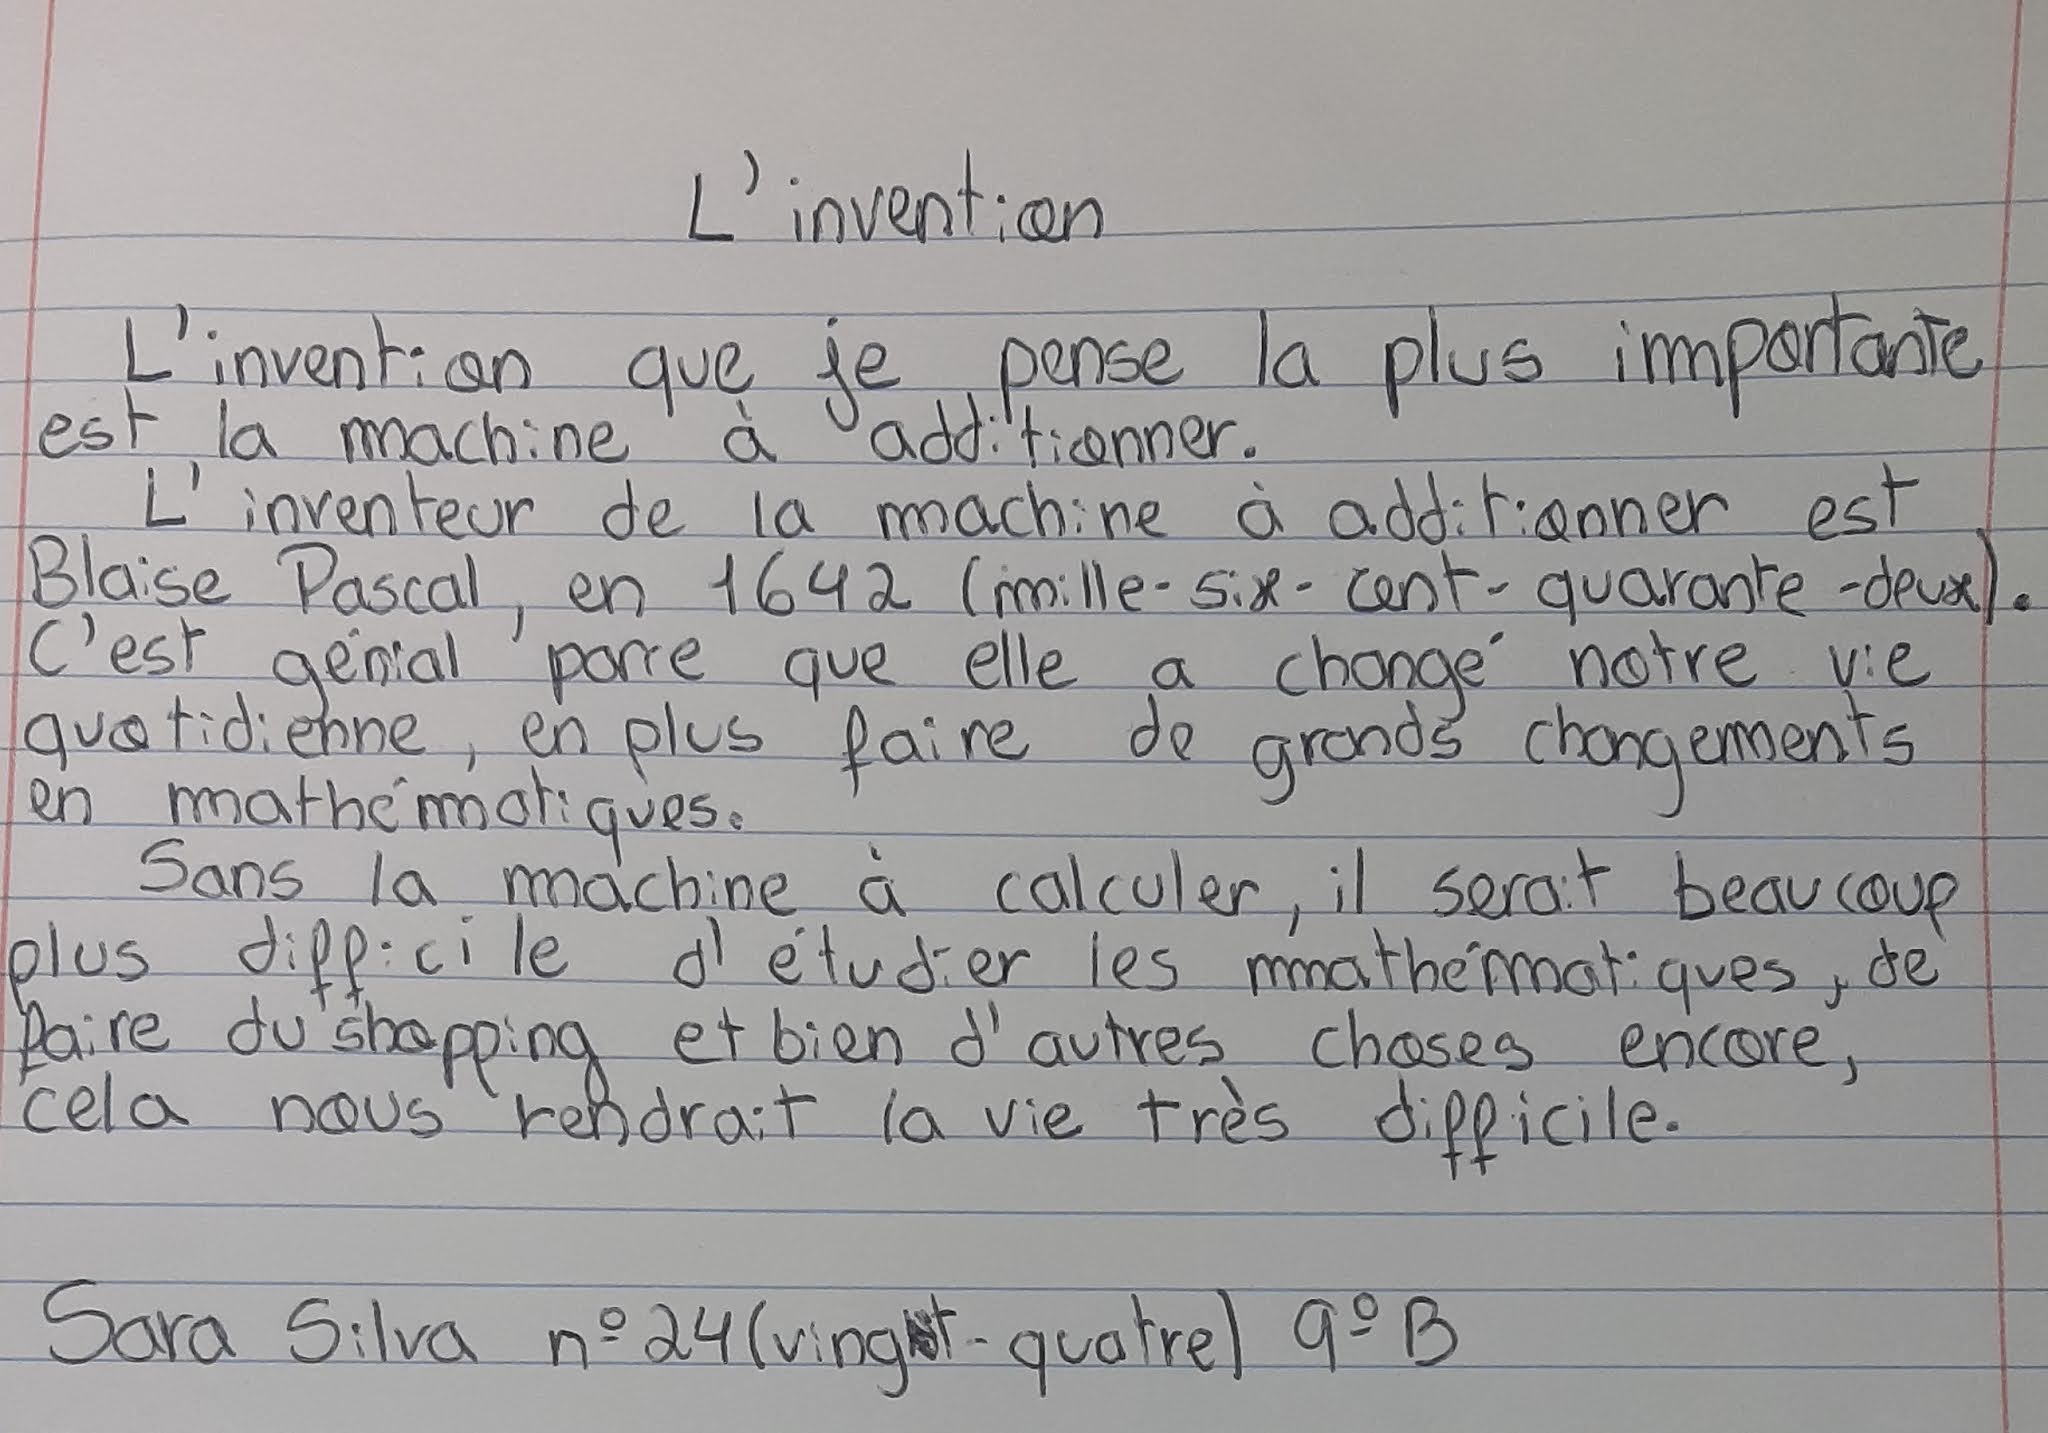 L'invention
L'invention que je pense la plus importante
est la machine à additionner.
L'inventeur de la machine à additionner est
Blaise Pascal, en 1642 (mille-six-cent-quarante-deux).
C'est génial parce que elle a changé notre vie
quotidienne, en plus faire de grands changements
en mathématiques.
Sans la machine à calculer, il serait beaucoup
plus difficile d'étudier les mathématiques, de
faire du shopping et bien d'autres choses encore,
cela nous rendrait la vie très difficile.
Sara Silva nº 24 (vingt-quatre) 9º B